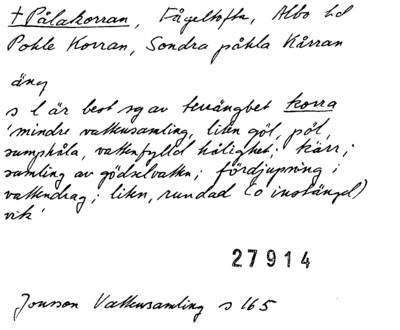 † Pålakorran, Fågeltofta, Albo hd
Pohle Korran, Sondra påhla Kårran
äng
s l är best sg av terrängbet korra
'mindre vattensamling, liten göl, pöl,
sumphåla, vattenfylld hålighet; kärr;
samling av gödselvatten; fördjupning i
vattendrag; liten, rundad (o instängd)
vik'
27914
Jonsson Vattensamling s 165